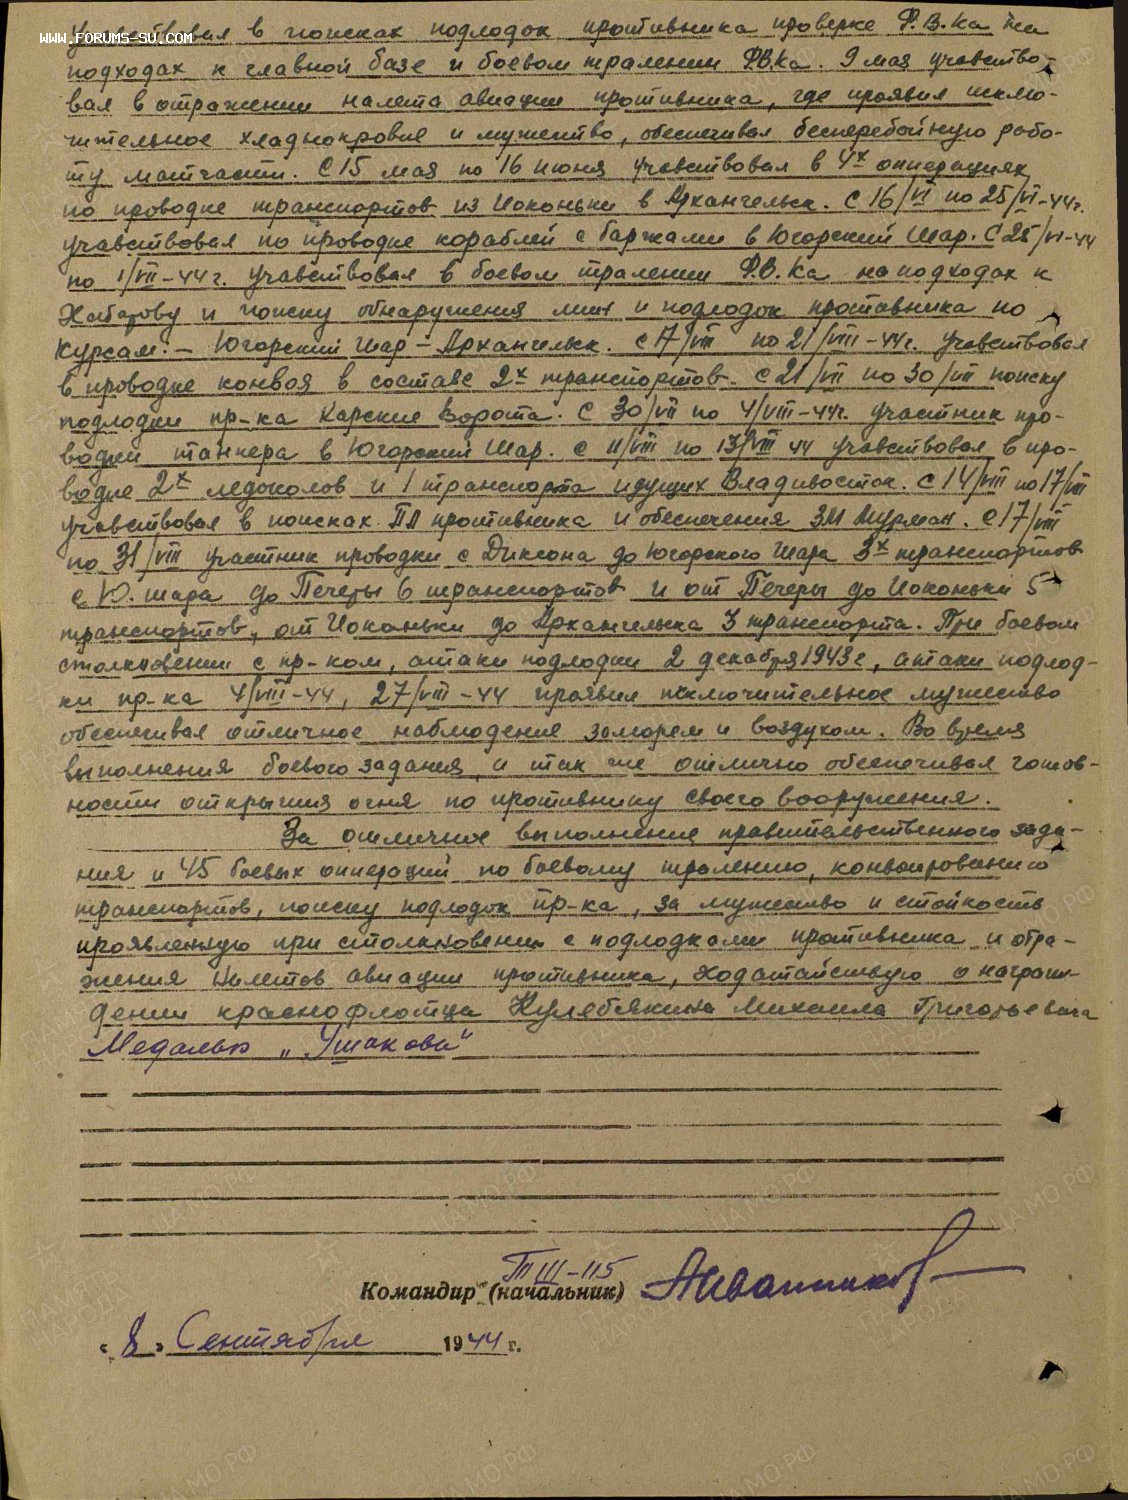 WWW.FORUMS-SU.COM
в поисках подлодок противника проверке Ф.В.Ка на
подходах к главной базе и боевом тралении Ф.В.Ка. 9 мая учавство-
вал в отражении налета авиации противника, где проявил исклю-
чительное хладнокровие и мужество, обеспечивал бесперебойную рабо-
ту матчасти. С 15 мая по 16 июня учавствовал в 4х опперациях
по проводке транспортов из Иоконьки в Архангельск. С 16/VI по 25/VI-44г.
учавствовал по проводке кораблей с баржами в Югорский Шар. С 25/VI-44
по 1/VII-44г. учавствовал в боевом тралении Ф.В.Ка на подходах к
Хабарову и поиску обнаружения мин и подлодок противника по
курсам:- Югорский шар - Архангельск. с 17/VII по 21/VIII-44г. учавствовал
в проводке конвоя в составе 2х транспортов. с 21/VII по 30/VII поиску
подлодки пр-ка Карские Ворота. С 30/VII по 4/VIII-44г. участник про-
водки танкера в Югорский Шар. с 11/VIII по 13/VIII 44 учавствовал в про-
водке 2х ледоколов и 1 транспорта идущих Владивосток. С 14/VIII по 17/VIII
учавствовал в поисках ПЛ противника и обеспечения ЗМ Мурман. С 17/VIII
по 31/VIII участник проводки с Диксона до Югорского Шара 3х транспортов
с Ю. шара до Печеры 6 транспортов и от Печеры до Иоконьки 5
транспортов, от Иоконьки до Архангельска 3 транспорта. При боевом
столкновении с пр-ком, атаки подлодки 2 декабря 1943г, атаки подлод-
ки пр-ка 4/VIII-44, 27/VIII-44 проявил исключительное мужество
обеспечивал отличное наблюдение заморем и воздухом. Во время
выполнения боевого задания, а так же отлично обеспечивал готов-
ности открытия огня по противнику своего вооружения.
За отличное выполнение правительственного зада-
ния и 45 боевых опперации по боевому тралению, конвоированию
транспортов, поиску подлодок пр-ка, за мужество и стойкость
проявленную при столкновении с подлодками противника и отра-
жения налетов авиации противника, ходатайствую о награж-
дении краснофлотца Кулябякина Михаила Григорьевича
Медалью „Ушакова"
ТЩ-115
Командир (начальник)
« 8 » Сентября 1944 г.